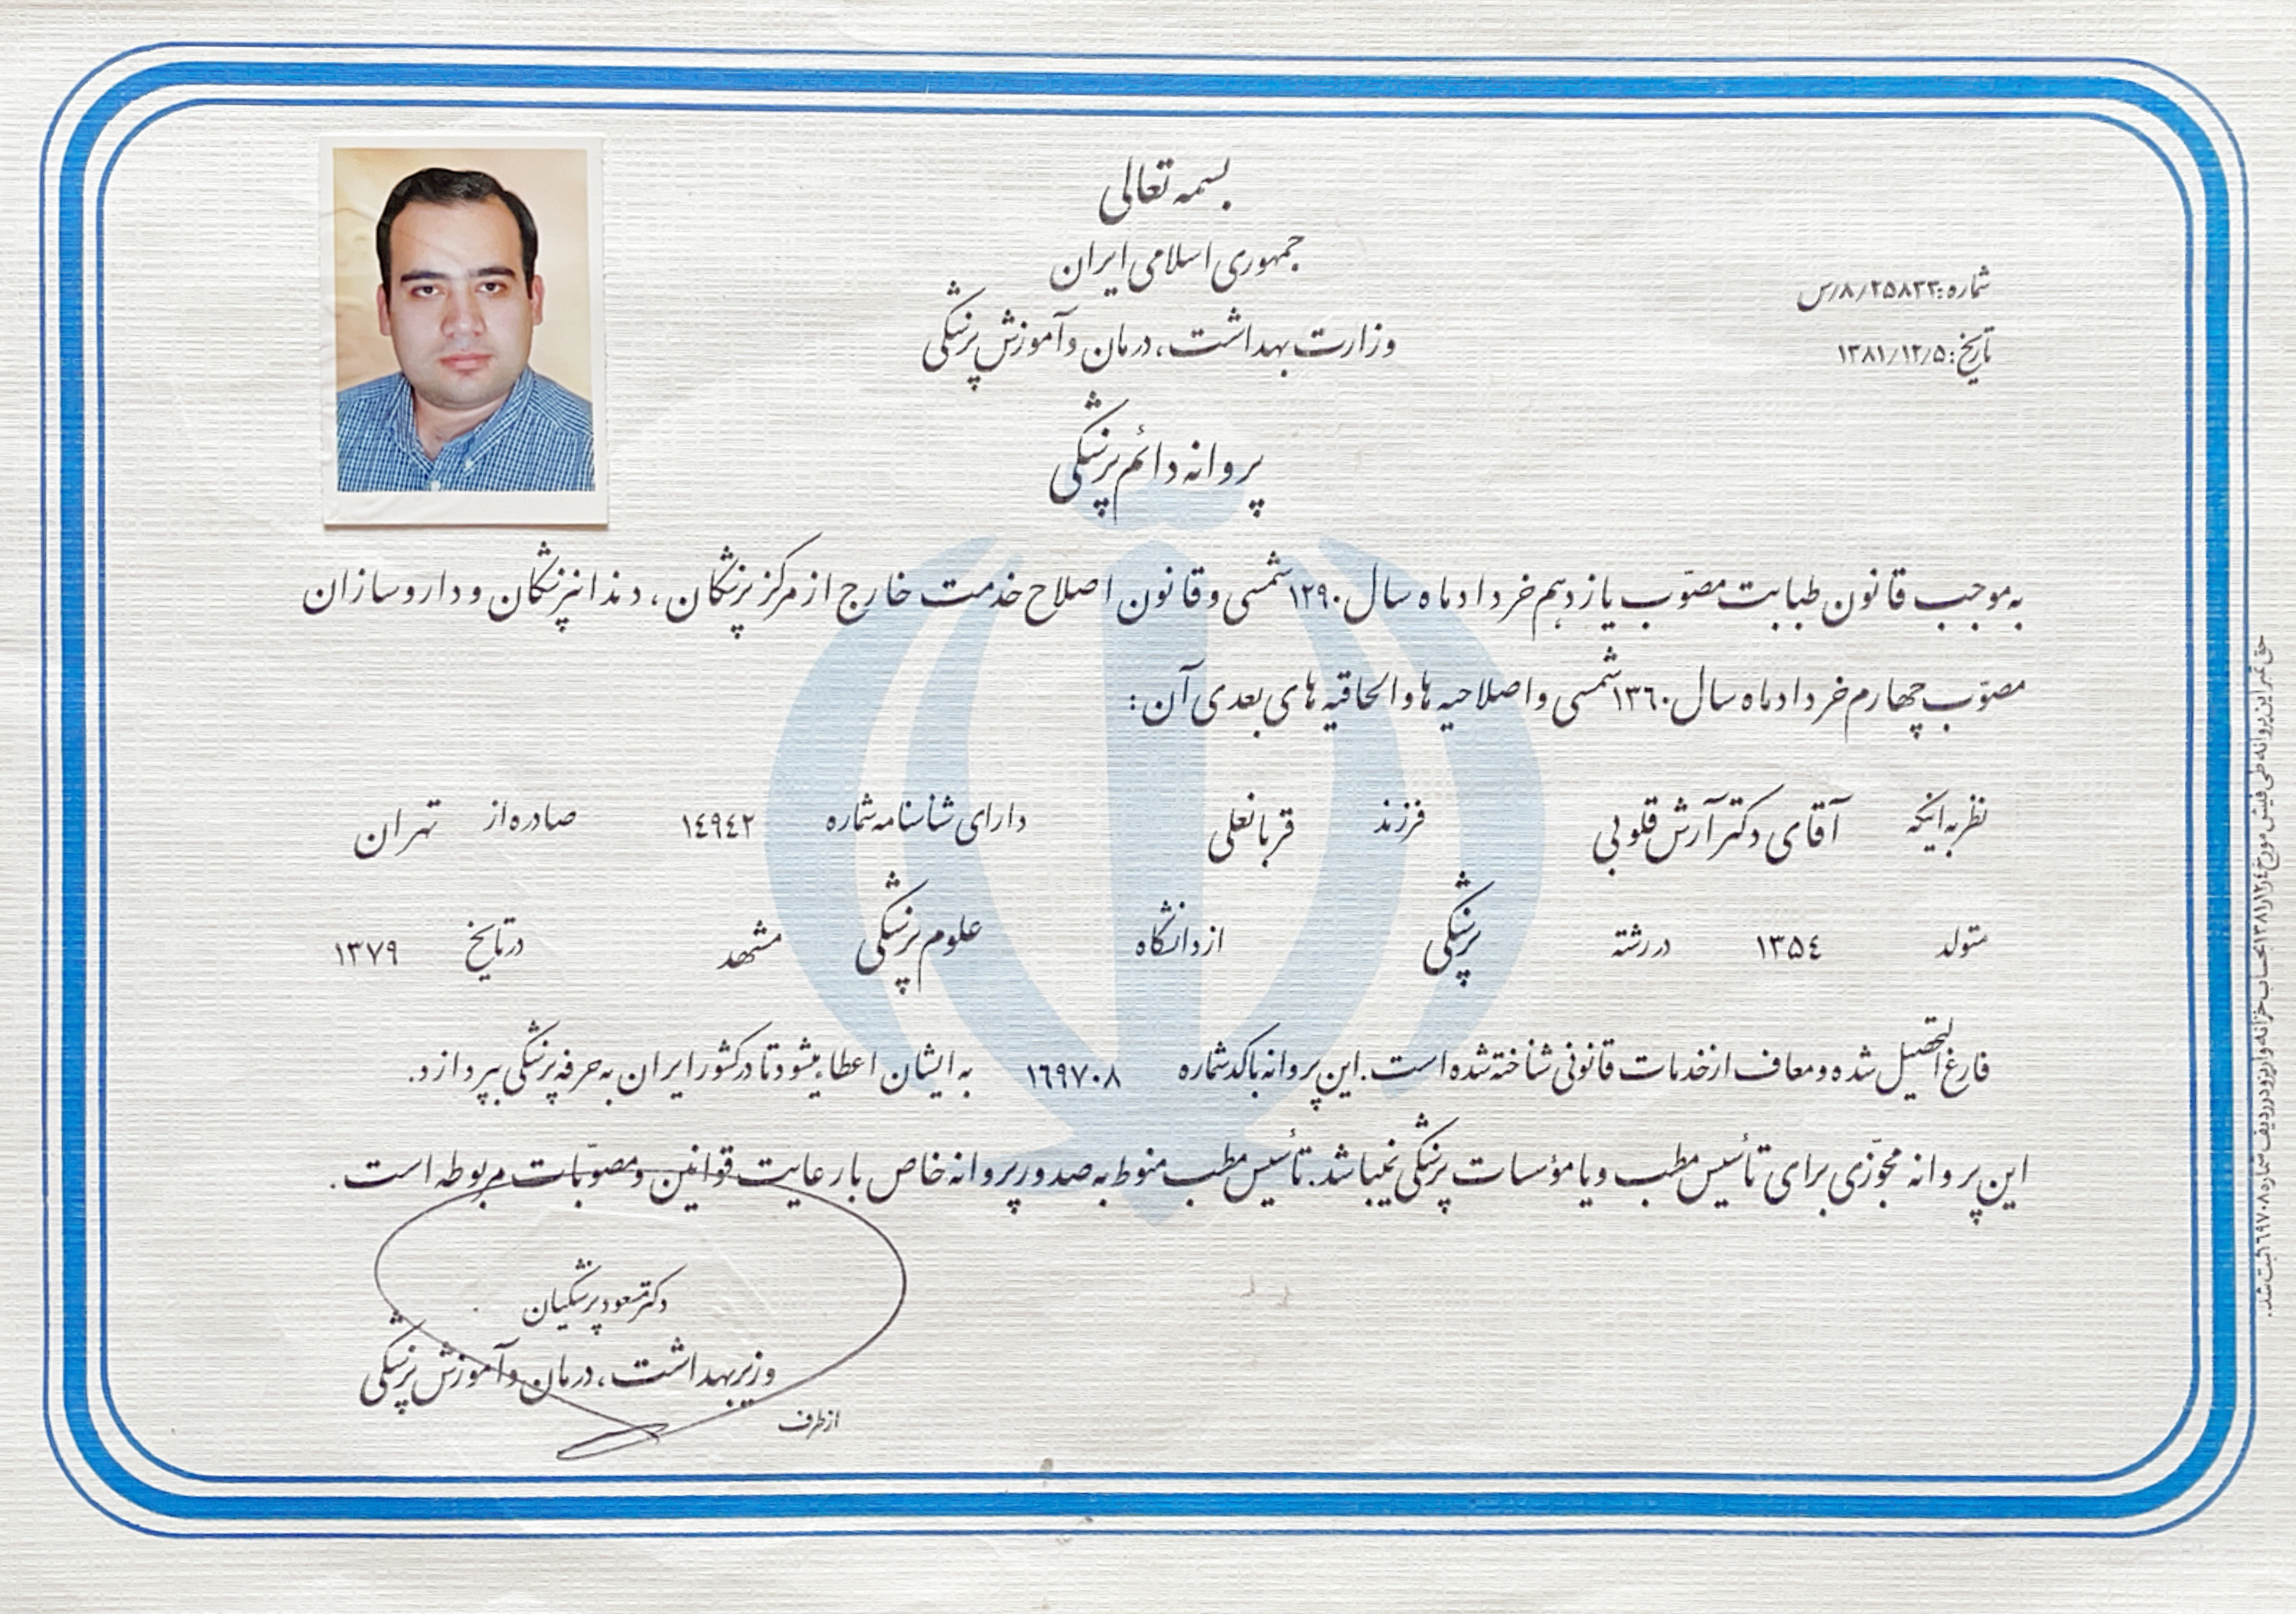 بسمه تعالی
جمهوری اسلامی ایران
وزارت بهداشت، درمان و آموزش پزشکی
شماره: ۸/۲۵۸۳۳/س
تاریخ: ۱۳۸۱/۱۲/۵
پروانه دائم پزشکی
به موجب قانون طبابت مصوّب یازدهم خرداد ماه سال ۱۲۹۰ شمسی و قانون اصلاح خدمت خارج از مرکز پزشکان، دندانپزشکان و داروسازان
مصوّب چهارم خرداد ماه سال ۱۳۶۰ شمسی و اصلاحیه ها و الحاقیه های بعدی آن:
نظر به اینکه آقای دکتر آرش قلوبی فرزند قربانعلی دارای شناسنامه شماره ۱۴۹۴۲ صادره از تهران
متولد ۱۳۵۴ در رشته پزشکی از دانشگاه علوم پزشکی مشهد در تاریخ ۱۳۷۹
فارغ التحصیل شده و معاف از خدمات قانونی شناخته شده است. این پروانه با کد شماره ۱۶۹۷۰۸ به ایشان اعطا میشود تا در کشور ایران به حرفه پزشکی بپردازد.
این پروانه مجوّزی برای تأسیس مطب و یا مؤسسات پزشکی نمیباشد. تأسیس مطب منوط به صدور پروانه خاص با رعایت قوانین و مصوّبات مربوطه است.
دکتر مسعود پزشکیان
وزیر بهداشت، درمان و آموزش پزشکی
از طرف
حق تمبر این پروانه طی فیش مورخ ۱۳۸۱/۱۲/۴ بحساب خزانه واریز و در ردیف شماره ۱۶۹۷۰۸ ثبت شد.